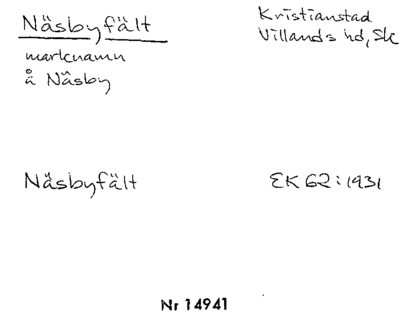 Näsbyfält
Kristianstad
Villands hd, Sk
marknamn
å Näsby
Näsbyfält
EK 62:1931
Nr 14941